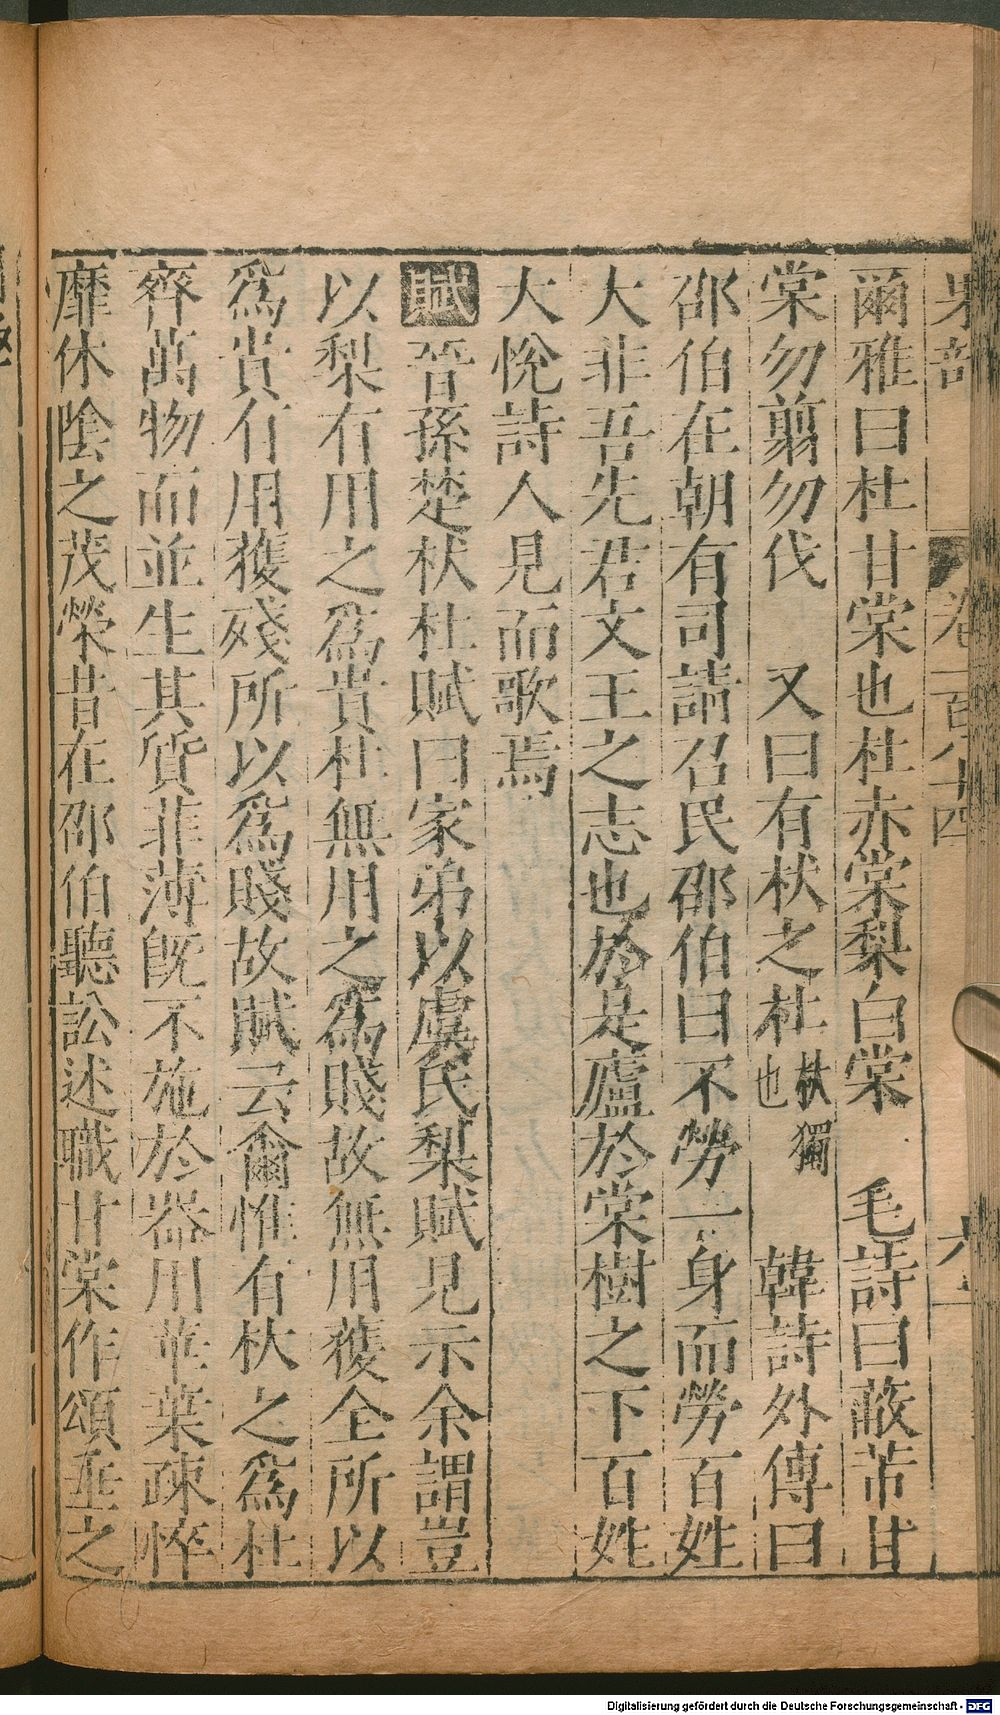 果部 卷一百八十四 六
爾雅曰杜甘棠也杜赤棠梨白棠 毛詩曰蔽芾甘
棠勿翦勿伐 又曰有杕之杜杕獨也 韓詩外傳曰
邵伯在朝有司請召民邵伯曰不勞一身而勞百姓
大非吾先君文王之志也於是廬於棠樹之下百姓
大悅詩人見而歌焉
賦晉孫楚杕杜賦曰家弟以虞氏梨賦見示余謂豈
以梨有用之爲貴杜無用之爲賤故無用獲全所以
爲貴有用獲殘所以爲賤故賦云爾惟有杕之爲杜
齊萬物而並生其質菲薄旣不施於器用華葉疎悴
靡休陰之茂榮昔在邵伯聽訟述職甘棠作頌垂之
Digitalisierung gefördert durch die Deutsche Forschungsgemeinschaft - DFG